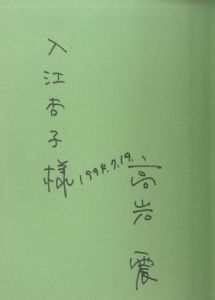 入江杏子様
1998.7.19.
高岩震